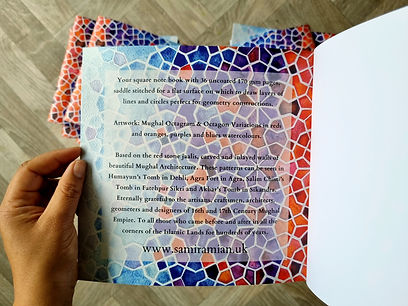 Your square note book with 36 uncoated 170 gsm pages,
saddle stitched for a flat surface on which to draw layers of
lines and circles perfect for geometry constructions.
Artwork: Mughal Octagram & Octagon Variations in reds
and oranges, purples and blues watercolours.
Based on the red stone jaalis, carved and inlayed walls of
beautiful Mughal Architecture. These patterns can be seen in
Humayun's Tomb in Dehli, Agra Fort in Agra, Salim Chisti's
Tomb in Fatehpur Sikri and Akbar's Tomb in Sikandra.
Eternally grateful to the artisans, craftsmen, architects,
geometers and designers of 16th and 17th Century Mughal
Empire. To all those who came before and after under all the
corners of the Islamic Lands for hundreds of years.
www.samiramian.uk